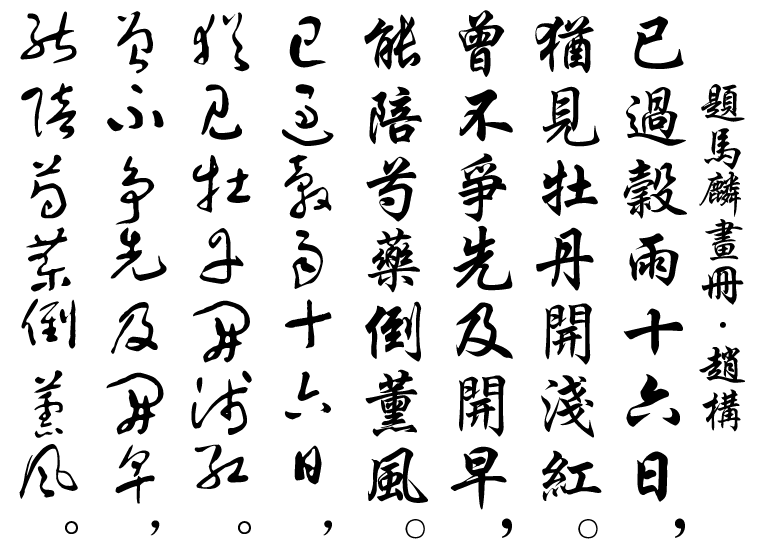 題馬麟畫冊·趙構
已過穀雨十六日，
猶見牡丹開淺紅。
曾不爭先及開早，
能陪芍藥倒薰風。
已過穀雨十六日，
猶見牡丹開淺紅。
曾不爭先及開早，
能陪芍藥倒薰風。